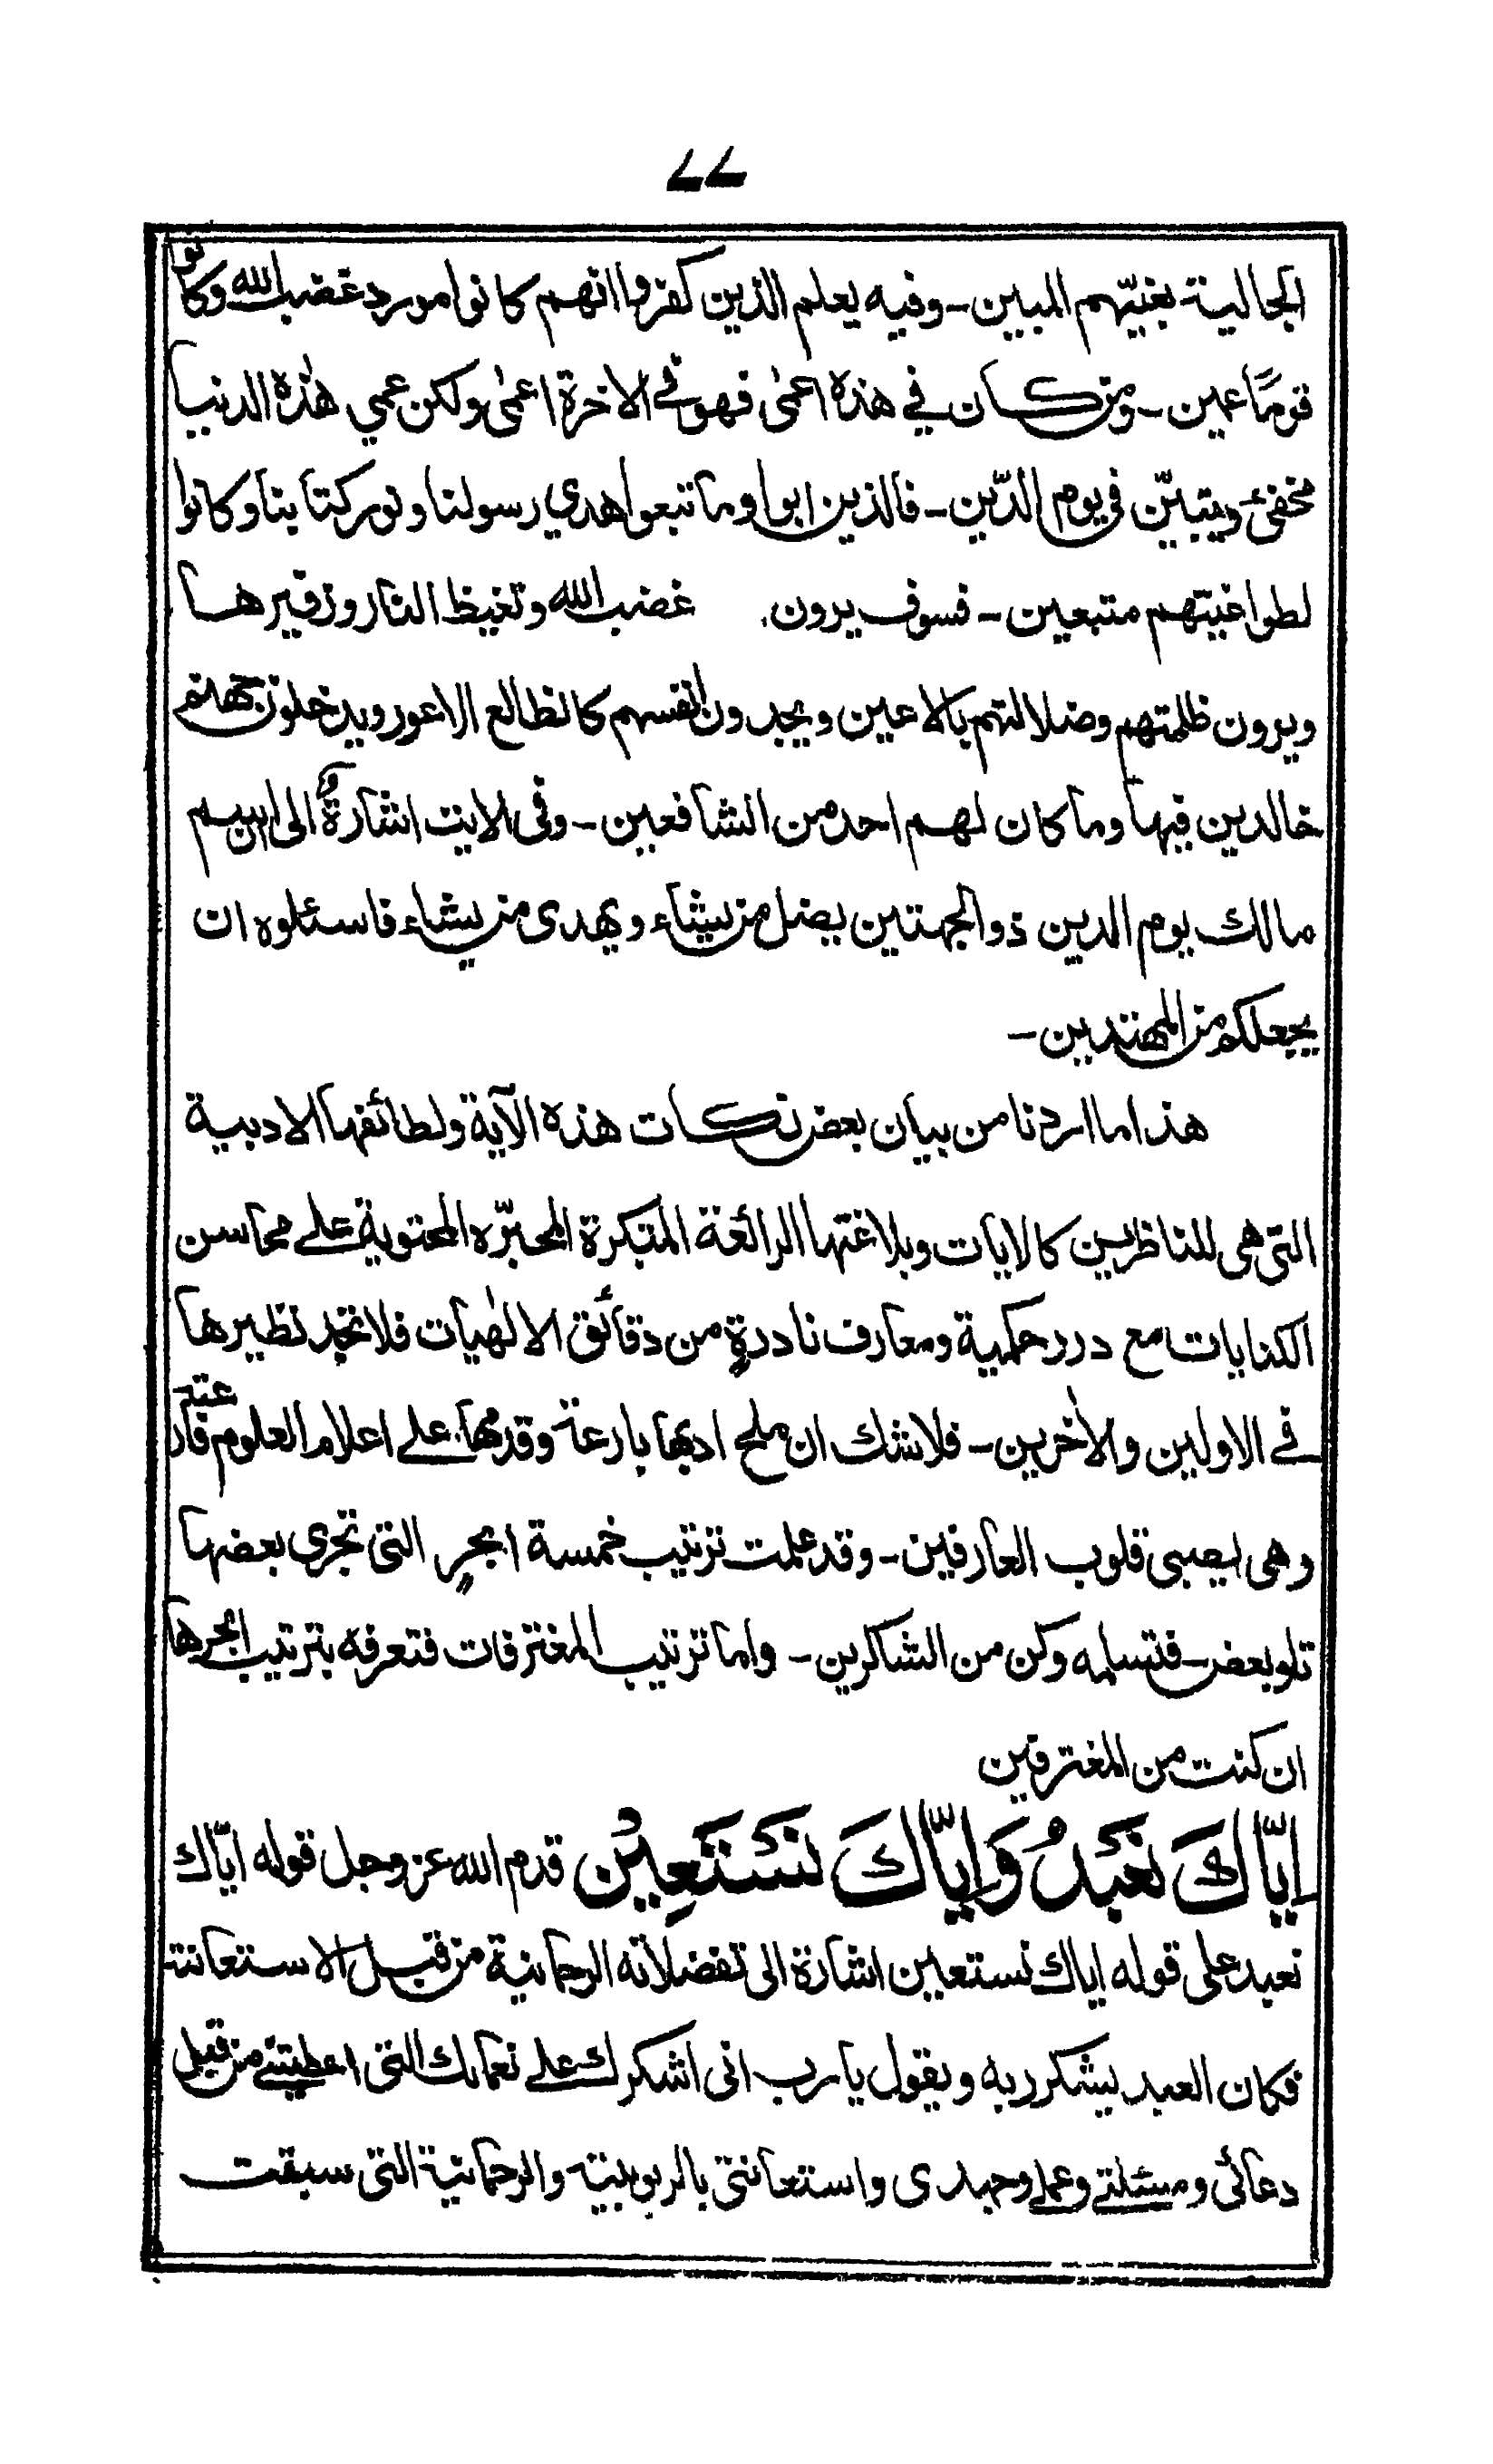 ٧٧
الجالية بغيّهم المبين ـ وفيه يعلم الذين كفروا انهم كانوا مورد غضب الله وكانوا
قومًا عمين ـ ومن كان في هذه اعمىٰ فهو في الاخرة اعمىٰ ولكن عمي هٰذه الدنيا
مخفيّ ويتبيّن في يوم الدّين ـ فالذين ابوا وما تبعوا هدي رسولنا ونور كتابنا وكانوا
لطواغيتهم متبعين ـ فسوف يرون غضب الله وتغيظ النار وزفيرها
ويرون ظلمتهم وضلالتهم بالاعين ويجدون انفسهم كالظالع الاعور ويدخلون جهنم
خالدين فيها وما كان لهم احد من الشافعين ـ وفي الاية اشارةٌ الى ان اسم
مالك يوم الدين ذو الجهتين يضل من يشاء ويهدى من يشاء فاسئلوه ان
يجعلكم من المهتدين ـ
هذا ما اردنا من بيان بعض نكات هذه الآية ولطائفها الادبية
التي هي للناظرين كالايات وبلاغتها الرائعة المبتكرة المحبّرة المحتوية على محاسن
الكنايات مع درر حكمية ومعارف نادرةٍ من دقائق الالٰهيات فلا تجد نظيرها
في الاولين والاٰخرين ـ فلا شك ان ملح ادبها بارعة وقدمها على اعلام العلوم فارعة
وهى يصبى قلوب العارفين ـ وقد علمت ترتيب خمسة ابحرٍ التى تجرى بعضها
تلو بعض ـ فتسلمه وكن من الشاكرين ـ واما ترتيب المغترفات فتعرفه بترتيب ابحرها
ان كنت من المغترفين
اِيّاكَ نَعْبُدُ وَاِيّاكَ نَسْتَعِيْن قدم الله عز وجل قوله ايّاك
نعبد على قوله اياك نستعين اشارة الى تفضلاته الرحمانية من قبل الاستعانة
فكان العبد يشكر ربه ويقول يا رب انى اشكرك على نعمائك التى اعطيتني من قبل
دعائى ومسئلتي وعملي وجهدى واستعانتى بالربوبية والرحمانية التى سبقت